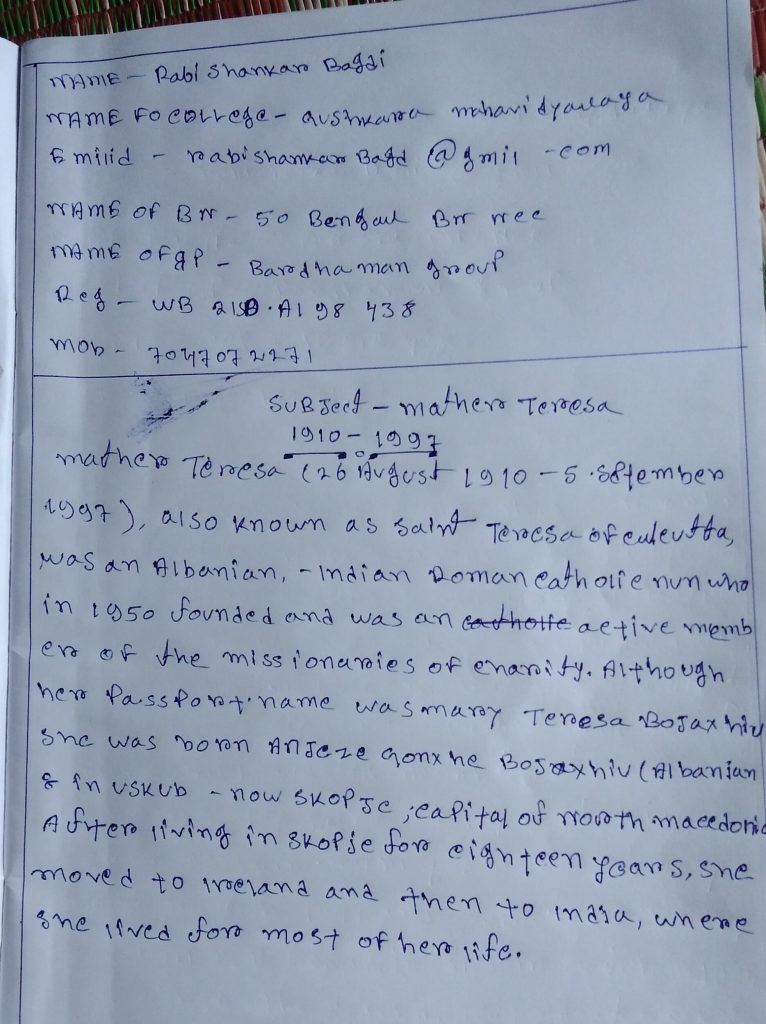 NAME - Rabi Shankar Bagdi
NAME FO College - Aushkara mahavidyalaya
Emilid - rabishankar Bagd @gmil -com
NAME OF BN - 50 Bengal Bn ncc
NAME OF gP - Bardhaman group
Reg - WB 21SD.A198 438
mob - 7047072271
SUBJect - mather Teresa
1910 - 1997
mather Teresa (26 August 1910 - 5 Septtember
1997), also known as saint Teresa of culcutta,
was an Albanian, - Indian Roman catholic nun who
in 1950 founded and was an catholic active memb
er of the missionaries of charity. Although
her Passport name was mary Teresa Bojaxhiu
She was born Anjeze Gonxhe Bojaxhiu (Albanian
& in uskub - now skopje ; capital of north macedonia
After living in skopje for eighteen years, she
moved to ireland and then to india, where
she lived for most of her life.